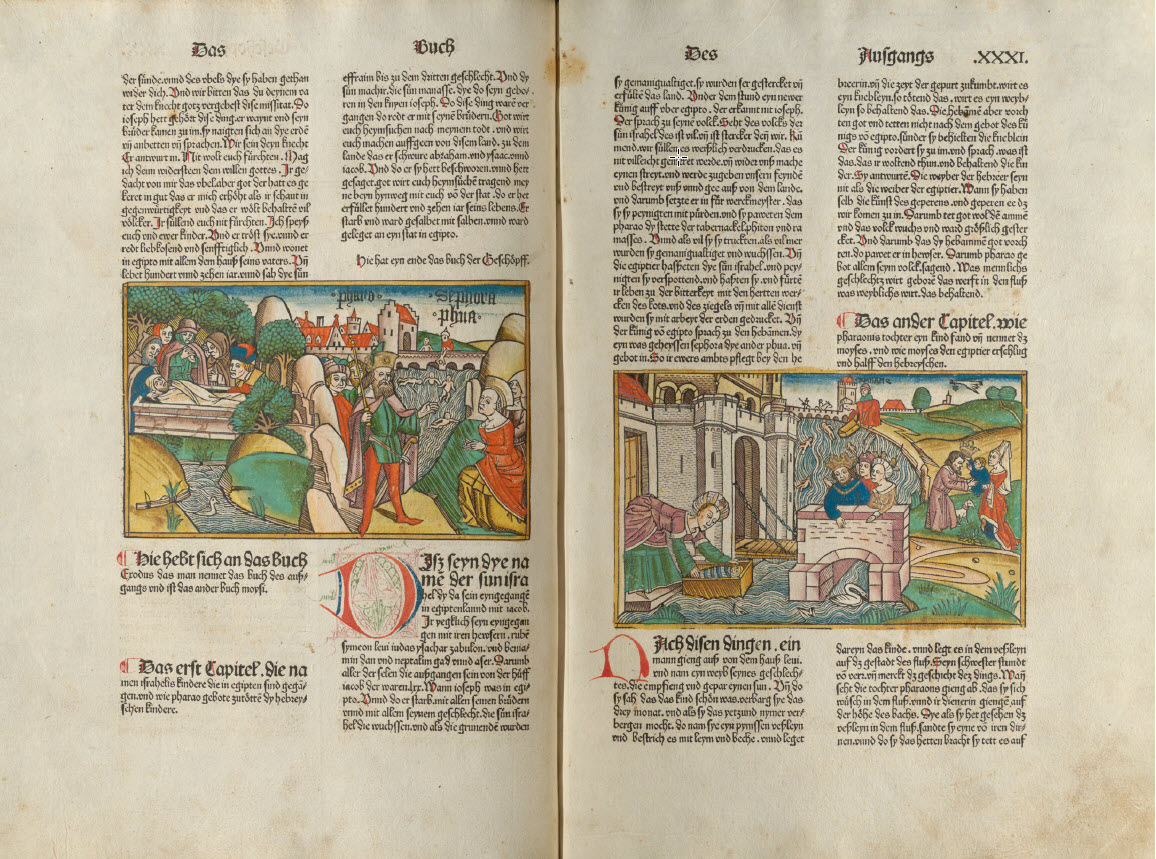 Das
Buch
der sünde. vnnd des vbels dye sy haben gethan
wider dich. Vnd wir bitten das du deynem va
ter dem knecht gotz vergebest dise missitat. Do
ioseph hett gehört dise ding. er waynt vnd seyn
brüder kamen zu im. sy naigten sich an dye erde
vn̄ anbetten vn̄ sprachen. Wir sein deyn knecht
Er antwurt in. Nit wolt euch fürchten. Mag
ich denn widersteen dem willen gottes. Ir ge⸗
dacht von mir das vbel. aber got der hatt es ge
keret in gut das er mich erhöht als ir schaut in
gegenwürtigkeyt vnd das er wölt behalten vil
völcker. Ir süllend euch nit fürchten. Ich speys
euch vnd ewer kinder. Vnd er tröst sye. vnnd er
redt liebkosend vnd senfftiglich. Vnnd wonet
in egipto mit allem dem hauß seins vaters. Vn̄
lebet hundert vnnd zehen iar. vnnd sah dye sün
effraim bis zu dem dritten geschlecht. Vnd dy
sün machir. die sün manasse. dye do seyn gebo⸗
ren in den knyen ioseph. Do dise ding warē ver
gangen do redt er mit seynē brüdern. Got wirt
euch heymsuchen nach meynem todt. vnd wirt
euch machen auffgeen von disem land. zu dem
lande das er schwure abraham. vnd ysaac. vnnd
iacob. Vnd do er sy hett beschworen. vnnd hett
gesaget. got wirt euch heymsuchē tragend mey
ne beyn hynweg mit euch vō der stat. do er het
erfüllet hundert vnd zehen iar seins lebens. Er
starb vnd ward gesalbet mit salben. vnnd ward
geleget an eyn stat in egipto.
Hie hat eyn ende das buch der Geschöpff.
Sephora
phua
Hie hebt sich an das Buch
Exodus das man nennet das buch des auß⸗
gangs vnd ist das ander buch moysi.
Das erst Capitel. die na
men israhelis kindere die in egipten sind gegā⸗
gen. vnd wie pharao gebote zutöten dy hebrey⸗
schen kindere.
Disz seyn dye na
mē der sun isra
hel dy da sein eyngegangē
in egiptenlannd mit iacob.
Ir yegklich seyn eyngegan
gen mit iren hewsern. rubē
symeon leui iudas ysachar zabulon. vnd benia⸗
min dan vnd neptalim gad vnnd aser. Darumb
aller der selen die außgangen sein von der hüff
iacob der waren. lxx. Wann ioseph was in egi⸗
pto. Vnnd do er starb. mit allen seinen brüdern
vnnd mit allem seynem geschlecht. die sün isra⸗
hel die wuchssen. vnd als die grunendē wurden
Des
Außgangs
.XXXI.
sy gemanigualtiget. sy wurden ser gestercket vn̄
erfüllē das land. Vnder dem stund eyn newer
künig auff vber egipto. der erkant nit ioseph.
Der sprach zu seynē volck. Seht des volcks der
sün israhel des ist vil. vn̄ ist stercker deñ wir. Ku
mend. wir süllen es weyßlich verdrucken. das es
nit villeicht gemeret werde. vn̄ wider vnß mache
eynen streyt. vnd werde zugeben vnsern feynden
vnd bestreyt vnß vnnd gee auß von dem lande.
vnd darumb setzte er in für werckmeyster. das
sy sy peynigten mit pürden. vnd sy paweten dem
pharao dy stette der tabernackel phiton vnd ra
masses. Vnnd als vil sy sy truckten. als vil mer
wurden sy gemanigualtiget vnd wuchssen. Vn̄
die egiptier haßseten dye sün israhel. vnd pey⸗
nigten sy verspottend. vnd haßten sy. vnd fürtē
ir leben zu der bitterkeyt mit den hertten wer⸗
cken des kots. vnd des ziegels vn̄ mit allē dienst
wurden sy mit arbeyt der erden gedrucket. Vn̄
der künig vō egipto sprach zu den hebāmen. dy
eyn was geheyssen sephora dye ander phua. vn̄
gebot in. So ir ewers ambts pflegt bey den he
breerin. vn̄ die zeyt der gepurt zukumbt. wirt es
eyn kneblein. so tötend das. wirt es eyn weyb⸗
leyn so behaltend das. Die hebāmē aber vorch
ten got vnd tetten nicht nach dem gebot des kü
nigs vō egipto. sunder sy behielten die kneblein
Der künig vordert sy zu im. vnd sprach. was ist
das. das ir woltend thun. vnd behaltend die kin
der. Sy antwurtē. Die weyber der hebreer seyn
nit als die weiber der egiptier. Wann sy haben
selb die kunst des geperens. vnd geperen ee dz
wir komen zu in. Darumb tet got wol dē ammē
vnd das volck wuchs vnd ward größlich gester
cket. Vnd darumb das dy hebāmē got vorch
ten. do pawet er in hewser. Darumb pharao ge
bot allem seym volck. sagend. Was mennlichs
geschlechtz wirt geborē das werft in den fluß
was weyblichs wirt. das behaltend.
Das ander Capitel. wie
pharaonis tochter eyn kind fand vn̄ nennet dz
moyses. vnd wie moyses den egiptier erschlug
vnd halff den hebreyschen.
Nach disen dingen. ein
mann gieng auß von dem hauß leui.
vnd nam eyn weyb seynes geschlech⸗
tes. die empfieng vnd gepar eynen sun. Vn̄ do
sy sah das das kind schön was. verbarg sye das
drey monat. vnd als sy das yetzund nymer ver⸗
bergen mocht. do nam sye eyn pymssen veßleyn
vnd bestrich es mit leym vnd beche. vnnd leget
dareyn das kinde. vnnd legt es in dem veßleyn
auf dz gestadt des fluß. Seyn schwester stundt
vō verr. vn̄ merckt dz geschicht des dings. Wañ
seht die tochter pharaons gieng ab. das sy sich
wüsch in dem fluß. vnnd ir dienerin giengē auf
der höhe des bachs. Dye als sy het gesehen dz
veßleyn in dem fluß. sandte sy eyne vō iren dir⸗
nen. vnnd do sy das hetten bracht sy tett es auf